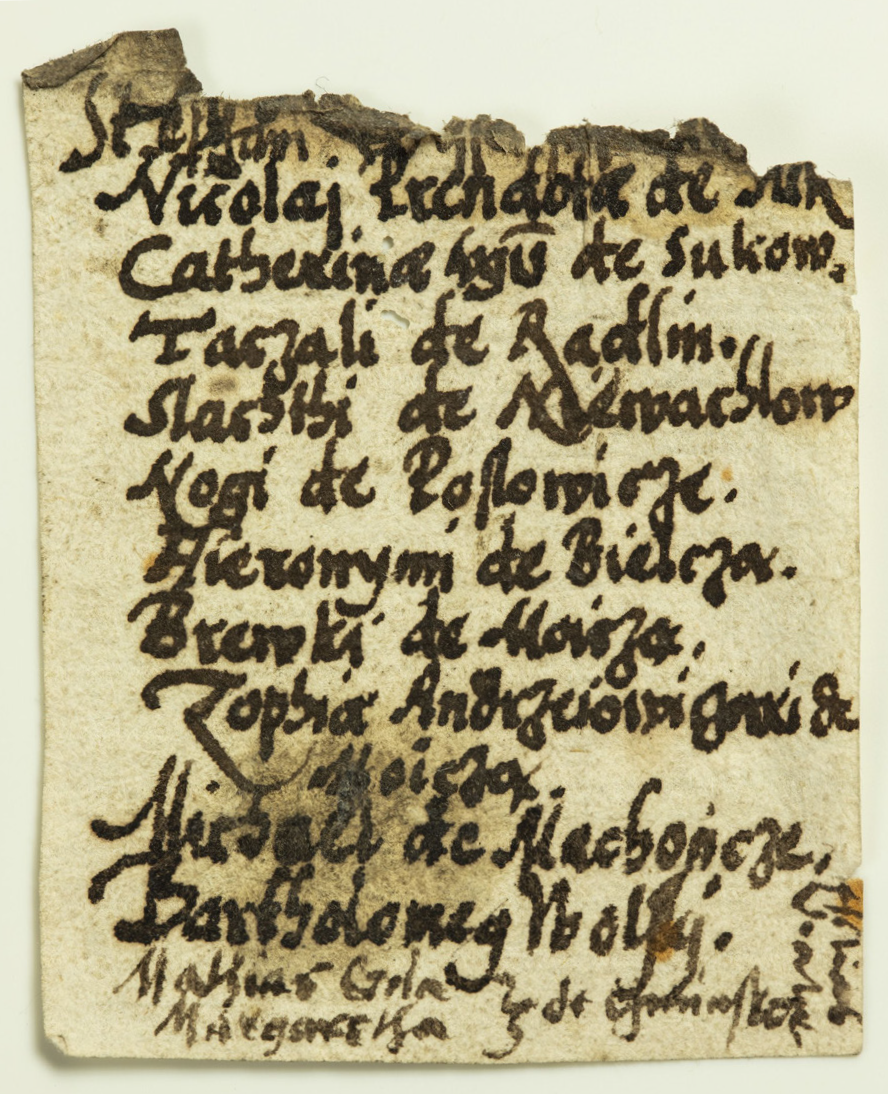 Stephan
Nicolaj Prendotæ de Suk
Catherinæ de Sukow.
Taczali de Radlin.
Slachthi de Niewachlow
Nogi de Poslowicze.
Hieronymi de Bielcza.
Brewki de Moicza.
Zophiæ de
Moicza.
Michael de Machoncze.
Bartholomey Wolski.
Mathias Gila de
Margaretha